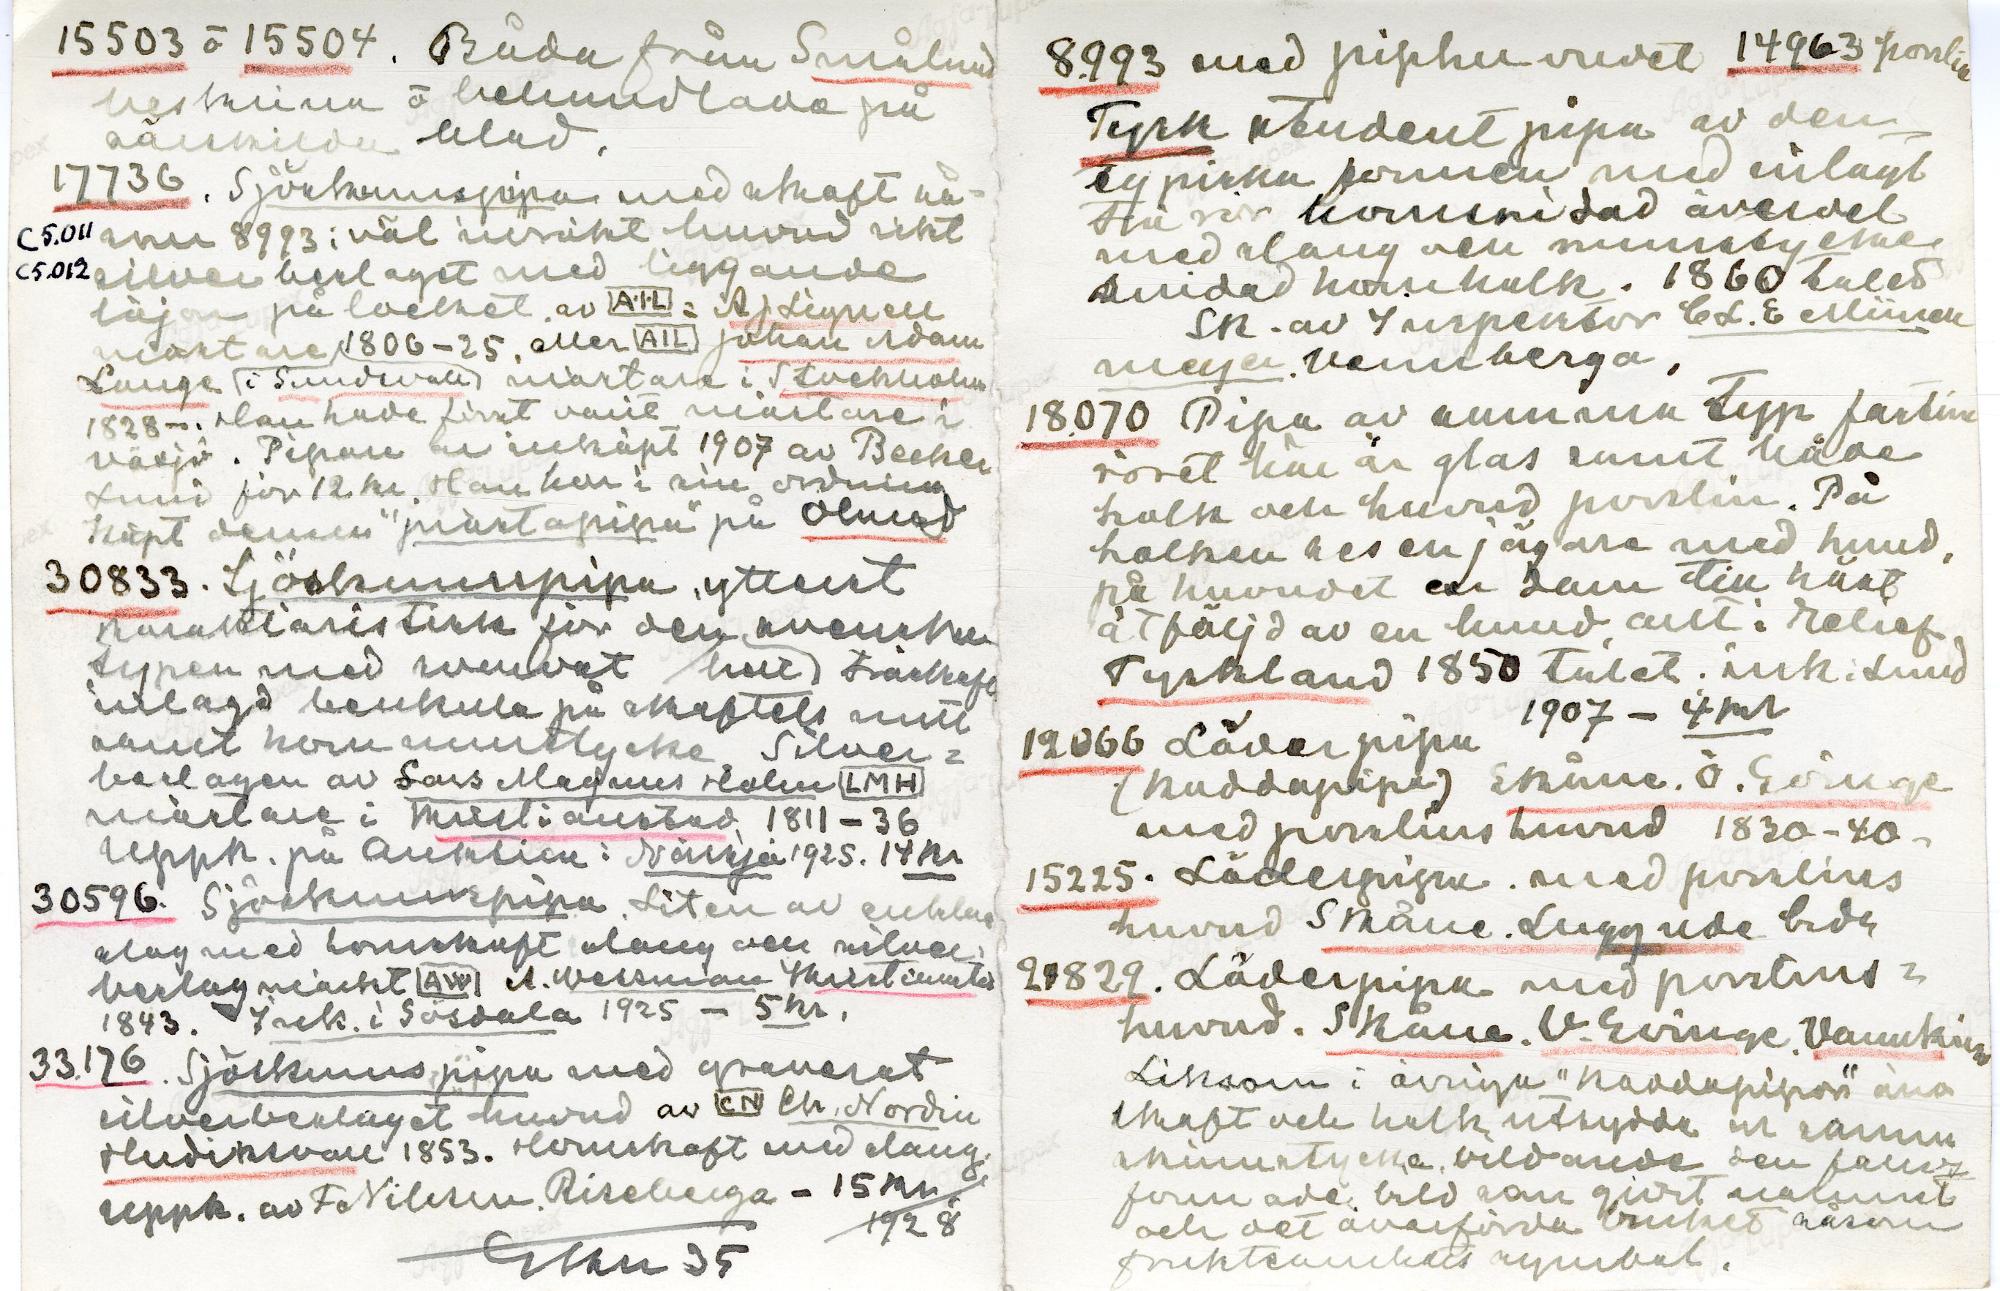 15503 ō 15504. Båda från Småland
beskrivna ō behandlade på
särskilda blad.
17736. Sjöskumspipa med skaft så-
C5.011 som 8993; väl insvärt huvud rikt
C5.012 silverbeslaget med liggande
lejon på locket. av A·I·L = A J Lignell
mästare 1806-25, eller AIL Johan Adam
Lange (i Sundsvall) mästare i Stockholm
1828-. Han hade först varit mästare i
Växjö. Pipan är inköpt 1907 av Becker
Lund för 12 kr. Han har i sin ordning
köpt denna "prästapipa" på Öland
30833. Sjöskumspipa, ytterst
karaktäristisk för den svenska
typen med svarvat träskaft
inlagd benkula på skaftets mitt
samt horn munstycke Silver=
beslagen av Lars Magnus Holm LMH
mästare i Kristianstad, 1811-36
Uppk. på Auktion i Nävsjö 1925. 14 kr
30596. Sjöskumspipa. Liten av enklare
slag med hornskaft slang och silver
beslag märkt AW A. Wessman Kristianstad
1843. Ink. i Sösdala 1925 - 5 kr.
33.176. Sjöskumspipa med graverat
silverbeslaget huvud av CN Ch. Nordin
Hudiksvall 1853. Hornskaft med slang.
uppk. av F. Nilsson. Riseberga - 15 kr.
1928
35
8993 med piphuvudet 14963 porslin
Tysk studentpipa av den
typiska formen med inlagt
trä rör hornsnidad ävensoel
med slang och munstycke
snidad hornholk. 1860 talet
Sk. av Inspektor C.L.E Münch
meyer. Vennberga.
18.070 Pipa av samma typ fastän
röret här är glas samt både
holk och huvud porslin. På
holken ses en jägare med hund,
på huvudet en dam till häst
åtföljd av en hund, allt i relief.
Tyskland 1850 talet. ink. i Lund
1907 - 4 kr
12066 Läderpipa
(Kaddapipa) Skåne. Ö. Göinge
med porslins huvud 1830-40-
15225. Läderpipa. med porslins
huvud Skåne. Luggude hda
21829. Läderpipa med porslins=
huvud. Skåne. V. Göinge. Vannkinga
Liksom i övriga "kaddapipor" äro
skaft och holk utsydda ur samma
skinnstycke, bildande den
formade bild som gjort
och det överförda bruket såsom
fruktsamhets symbol.